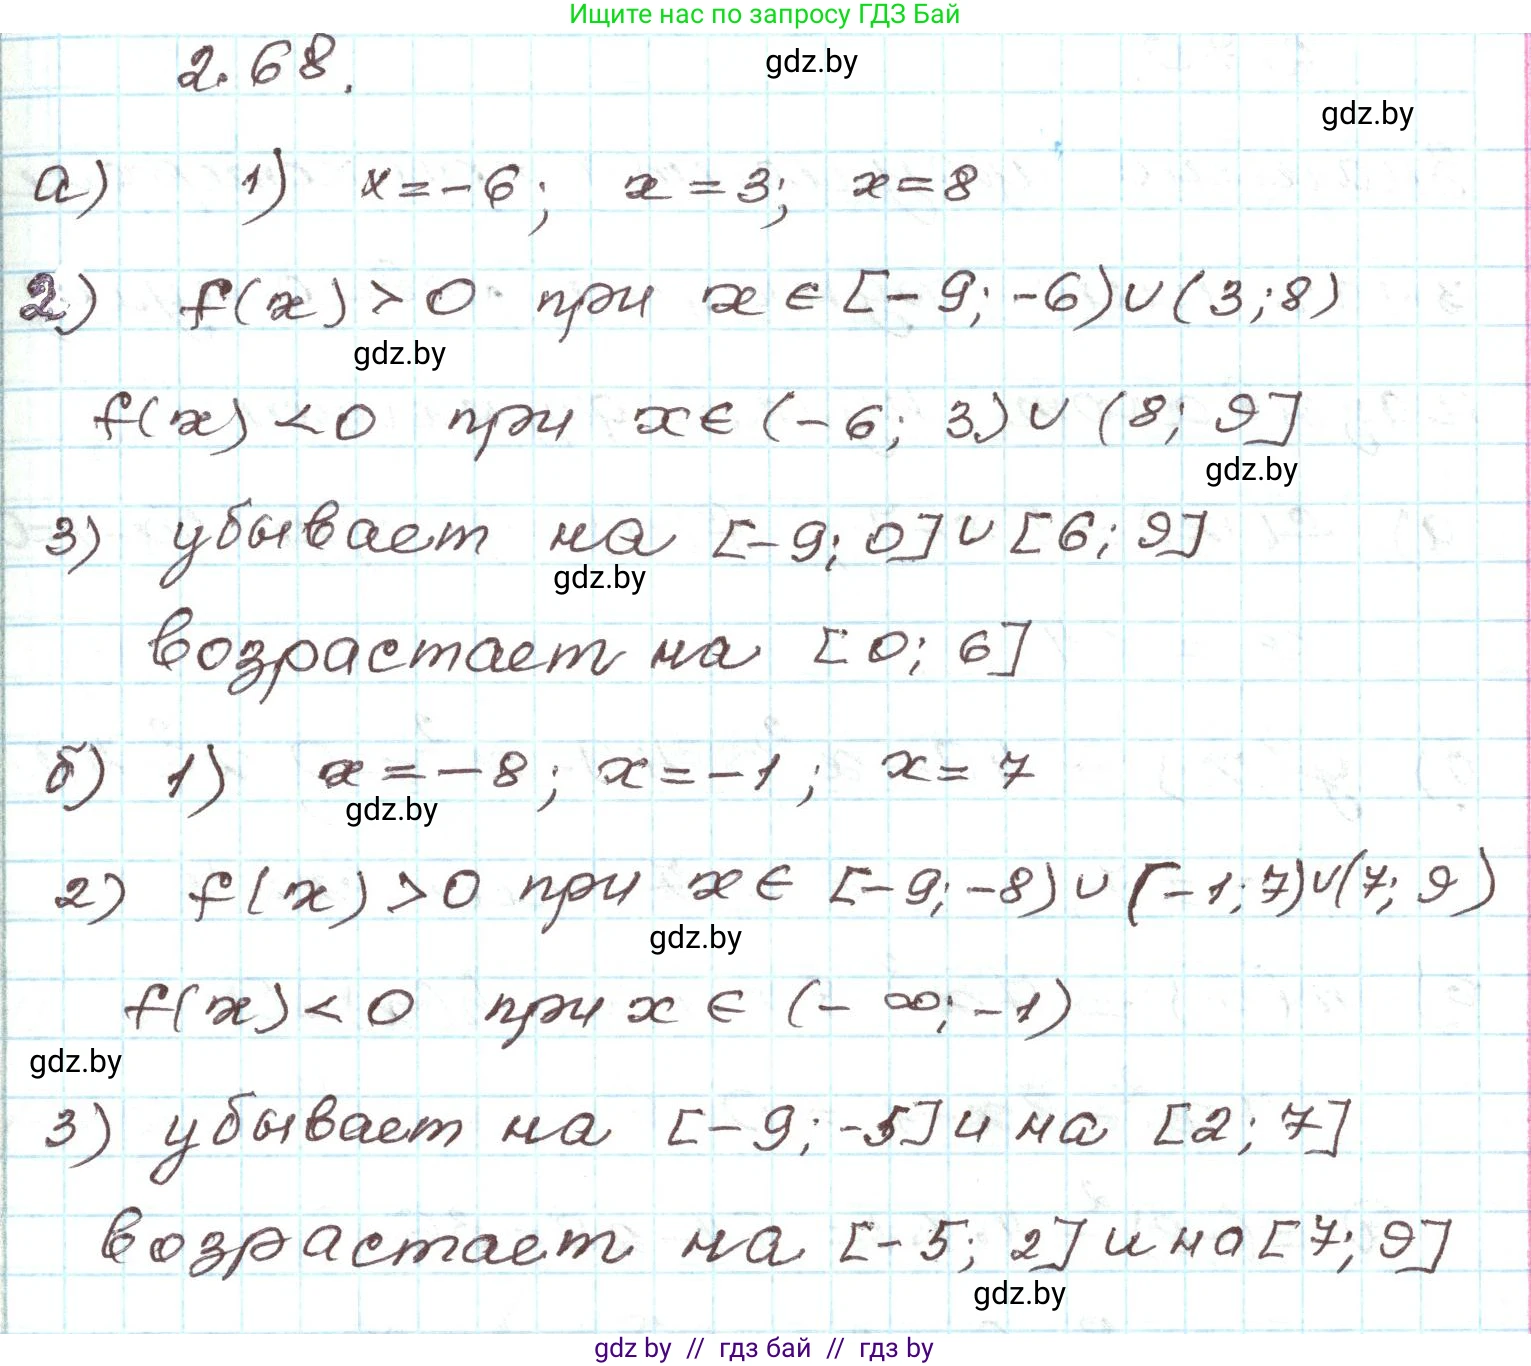 Ищите нас по запросу ГДЗ Бай
2.68.
gdz.by
gdz.by
а) 1) x=-6; x=3; x=8
2) f(x)>0 при x∈[-9;-6)∪(3;8)
gdz.by
f(x)<0 при x∈(-6; 3)∪(8; 9]
gdz.by
3) убывает на [-9; 0]∪[6; 9]
gdz.by
возрастает на [0; 6]
б) 1) x=-8; x=-1; x=7
gdz.by
2) f(x)>0 при x∈ [-9;-8)∪(-1;7)∪(7; 9)
gdz.by
f(x)<0 при x∈ (-∞;-1)
gdz.by
3) убывает на [-9; -5] и на [2; 7]
возрастает на [-5; 2] и на [7; 9]
gdz.by
gdz by // гдз бай // гдз by